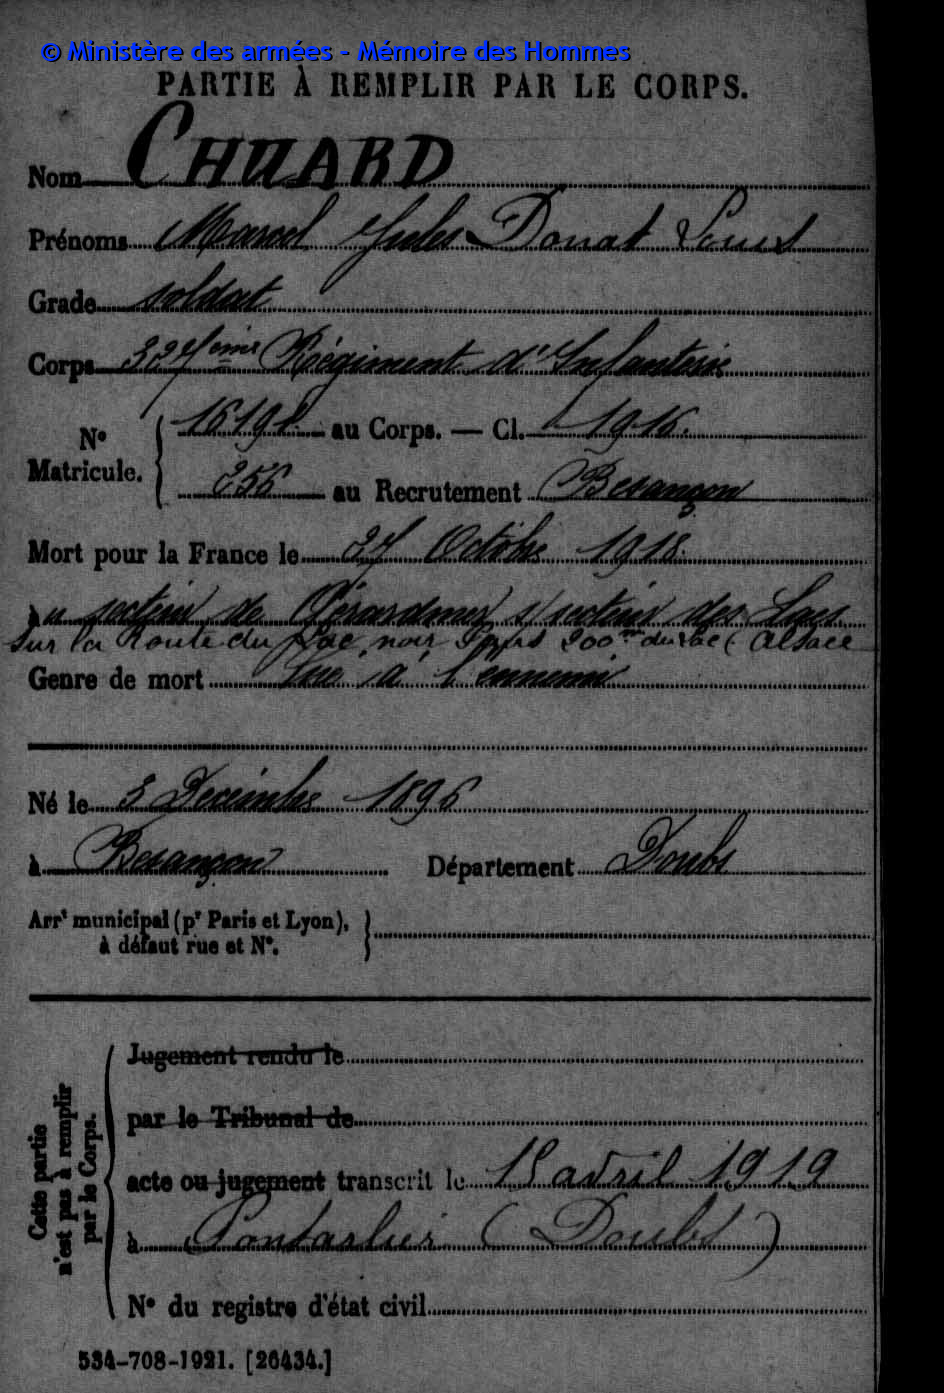 © Ministère des armées - Mémoire des Hommes
PARTIE À REMPLIR PAR LE CORPS.
Nom CHUARD
Prénoms Marcel Jules Donat Louis
Grade soldat
Corps 327ème Régiment d'Infanterie
No
Matricule.
au Corps. — Cl. 1916.
256 au Recrutement Besançon
Mort pour la France le 27 Octobre 1918.
au secteur de Gérardmer s/secteur des Lacs
Sur la Route du Lac noir 200m du Lac (Alsace
Genre de mort Tué à l'ennemi
Né le 3 Décembre 1896
à Besançon Département Doubs
Arrt municipal (pr Paris et Lyon),
à défaut rue et No.
Cette partie
n'est pas à remplir
par le Corps.
Jugement rendu le
par le Tribunal de
acte ou jugement transcrit le 15 avril 1919
à Pontarlier (Doubs)
No du registre d'état civil
534-708-1921. [26434.]